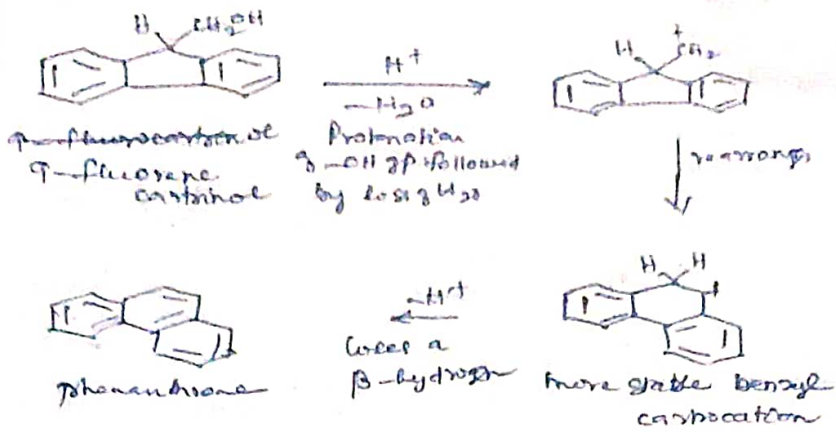 H CH2OH
H+
-H2O
H +CH2
9-fluorocarbinol
9-fluorene
carbinol
Protonation
of -OH gp followed
by loss of H2O
rearrange
H H
+
-H+
loses a
β-hydrogen
phenanthrene
more stable benzyl
carbocation